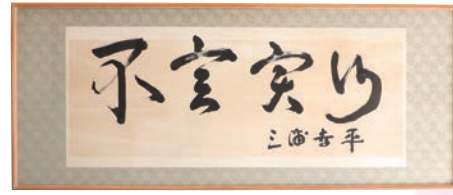 不言実行
三浦幸平